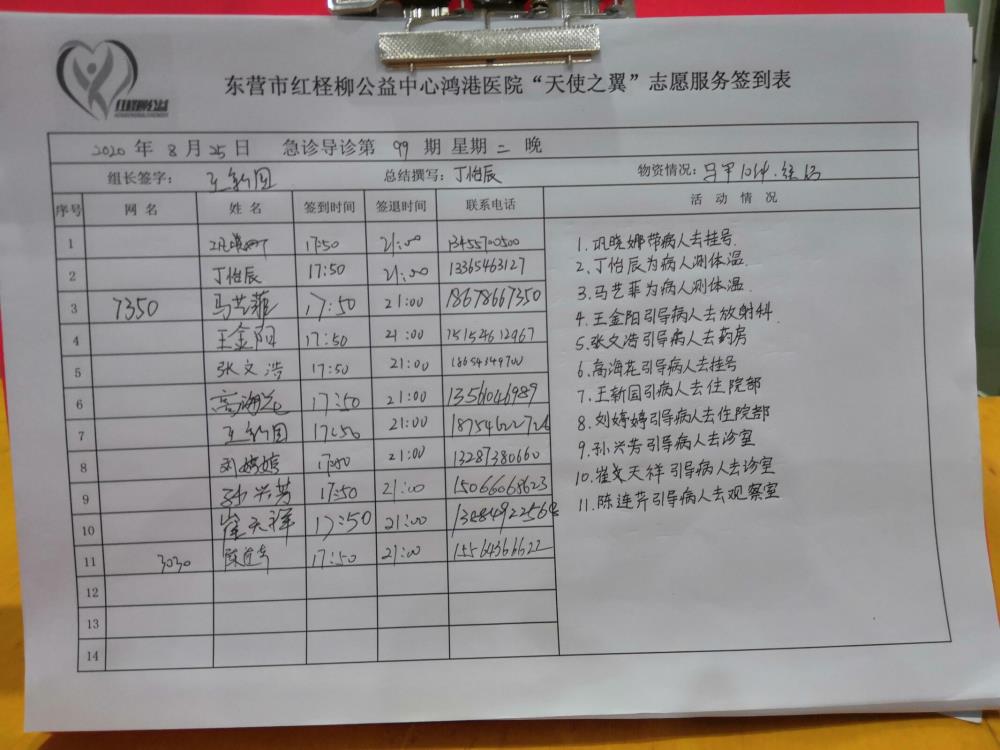 红柽柳公益
东营市红柽柳公益中心鸿港医院“天使之翼”志愿服务签到表
2020 年 8 月 25 日 急诊导诊第 99 期 星期 二 晚
组长签字: 王新国 总结撰写: 丁怡辰 物资情况: 马甲10件.
序号 网名 姓名 签到时间 签退时间 联系电话 活动情况
1 17:50 21:00 13455700500
2 丁怡辰 17:50 21:00 13365463127
3 7350 马艺菲 17:50 21:00 18678667350
4 王金阳 17:50 21:00 15154612967
5 张文浩 17:50 21:00 18654349700
6 高海花 17:50 21:00 13561046989
7 王新国 17:50 21:00
8 刘婷婷 17:50 21:00 13287380660
9 孙兴芳 17:50 21:00 15066068623
10 崔天祥 17:50 21:00
11 3030 陈连芹 17:50 21:00 15564366622
12
13
14
1. 巩晓娜带病人去挂号.
2. 丁怡辰为病人测体温.
3. 马艺菲为病人测体温.
4. 王金阳引导病人去放射科.
5. 张文浩引导病人去药房
6. 高海花引导病人去挂号
7. 王新国引病人去住院部
8. 刘婷婷引导病人去住院部
9. 孙兴芳引导病人去诊室
10. 崔天祥引导病人去诊室
11. 陈连芹引导病人去观察室